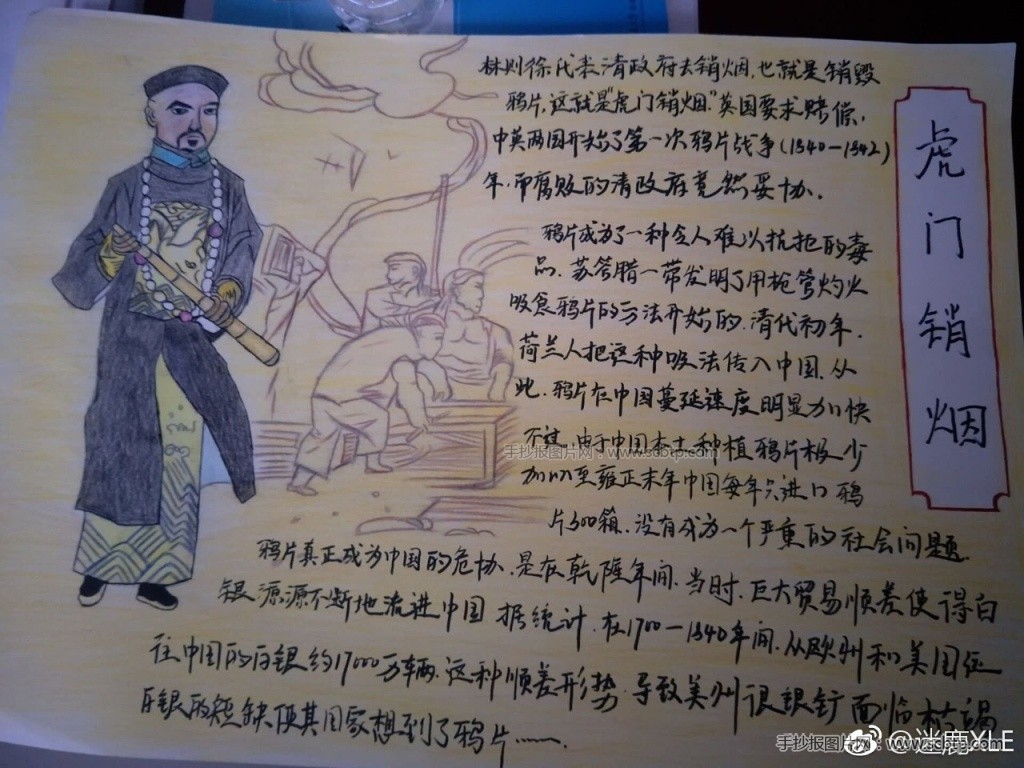 林则徐代表清政府去销烟,也就是销毁
鸦片,这就是"虎门销烟"英国要求赔偿,
中英两国开始了第一次鸦片战争(1840—1842)
年,而腐败的清政府竟然妥协.
虎门销烟
鸦片成为了一种令人难以抗拒的毒
品.苏答腊一带发明了用枪管灼火
吸食鸦片的方法开始的.清代初年.
荷兰人把这种吸法传入中国.从
此.鸦片在中国蔓延速度明显加快
不过.由于中国本土种植鸦片极少
加以至雍正末年中国每年只进口鸦
片300箱.没有成为一个严重的社会问题.
鸦片真正成为中国的危协.是在乾隆年间.当时.巨大贸易顺差使得白
银源源不断地流进中国 据统计.在1700—1840年间.从欧州和美国征
往中国的白银约17000万辆.这种顺差形势.导致美州很银钉面临枯竭
白银的短缺.使其国家想到了鸦片——.
手抄报图片网:www.scbtp.com
手抄报图片网:www.scbtp.com
@迷鹿XLE